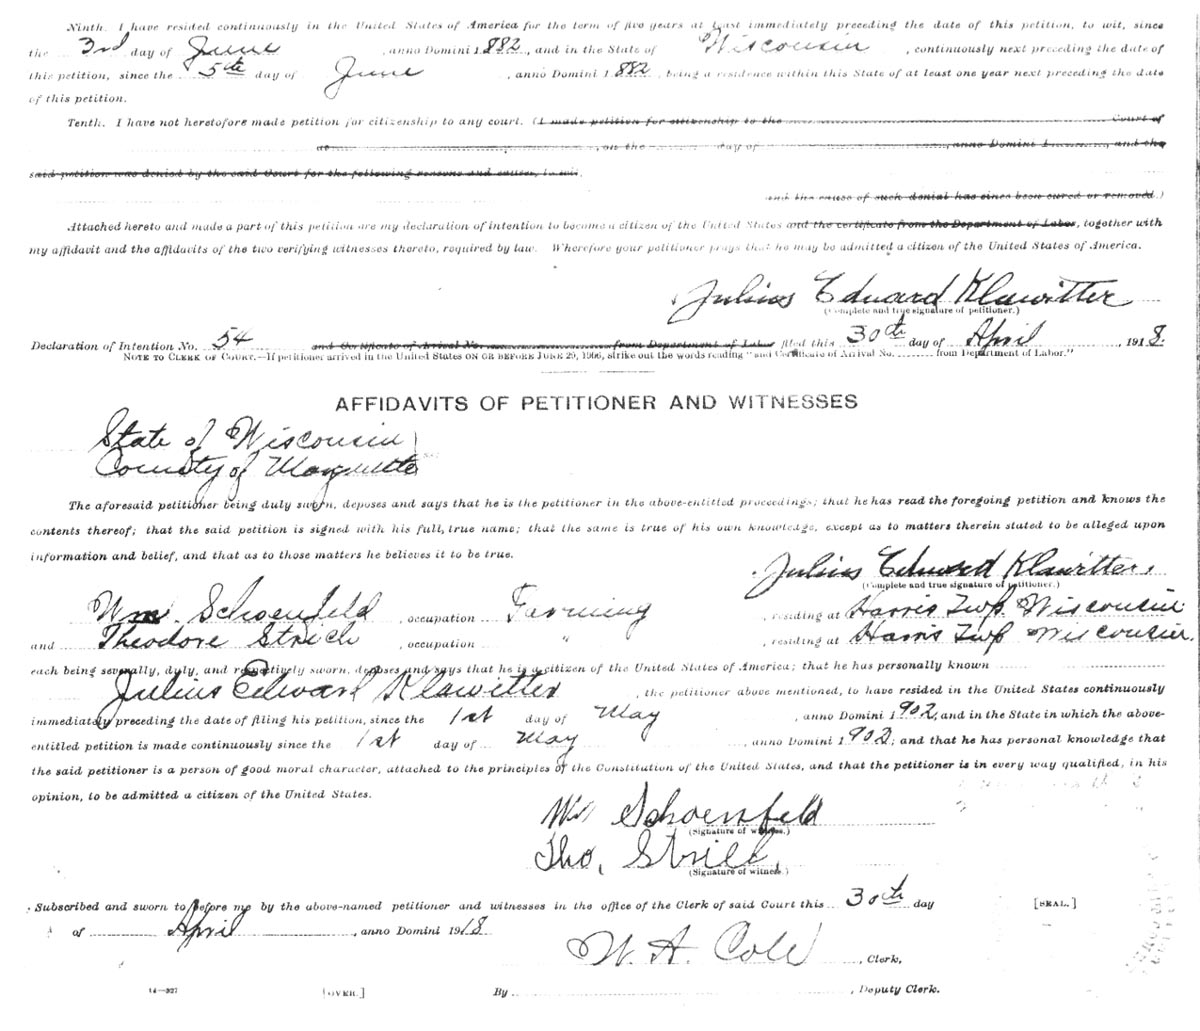 Ninth. I have resided continuously in the United States of America for the term of five years at least immediately preceding the date of this petition, to wit, since
the 3rd day of June, anno Domini 1882, and in the State of Wisconsin, continuously next preceding the date of
this petition, since the 5th day of June, anno Domini 1882, being a residence within this State of at least one year next preceding the date
of this petition.
Tenth. I have not heretofore made petition for citizenship to any court. (I made petition for citizenship to the Court of
at , on the day of , anno Domini 1 , and the
said petition was denied by the said Court for the following reasons and causes, to wit,
and the cause of such denial has since been cured or removed.)
Attached hereto and made a part of this petition are my declaration of intention to become a citizen of the United States and the certificate from the Department of Labor, together with
my affidavit and the affidavits of the two verifying witnesses thereto, required by law. Wherefore your petitioner prays that he may be admitted a citizen of the United States of America.
Julius Eduard Klawitter
(Complete and true signature of petitioner.)
Declaration of Intention No. 54 and Certificate of Arrival No. from Department of Labor filed this 30th day of April, 1918.
NOTE TO CLERK OF COURT.—If petitioner arrived in the United States ON OR BEFORE JUNE 29, 1906, strike out the words reading "and Certificate of Arrival No. from Department of Labor."
AFFIDAVITS OF PETITIONER AND WITNESSES
State of Wisconsin
County of Marquette
The aforesaid petitioner being duly sworn, deposes and says that he is the petitioner in the above-entitled proceedings; that he has read the foregoing petition and knows the
contents thereof; that the said petition is signed with his full, true name; that the same is true of his own knowledge, except as to matters therein stated to be alleged upon
information and belief, and that as to those matters he believes it to be true.
Julius Eduard Klawitter.
(Complete and true signature of petitioner.)
Wm. Schoenfeld, occupation Farming, residing at Harris Twp. Wisconsin
and Theodore , occupation ", residing at Harris Twp Wisconsin,
each being severally, duly, and respectively sworn, deposes and says that he is a citizen of the United States of America; that he has personally known
Julius Edward Klawitter, the petitioner above mentioned, to have resided in the United States continuously
immediately preceding the date of filing his petition, since the 1st day of May, anno Domini 1902, and in the State in which the above-
entitled petition is made continuously since the 1st day of May, anno Domini 1902; and that he has personal knowledge that
the said petitioner is a person of good moral character, attached to the principles of the Constitution of the United States, and that the petitioner is in every way qualified, in his
opinion, to be admitted a citizen of the United States.
Schoenfeld
(Signature of witness.)
Tho,
(Signature of witness.)
Subscribed and sworn to before me by the above-named petitioner and witnesses in the office of the Clerk of said Court this 30th day [SEAL.]
of April, anno Domini 1918
W. A. Cole, Clerk,
14—927 [OVER.] By , Deputy Clerk.